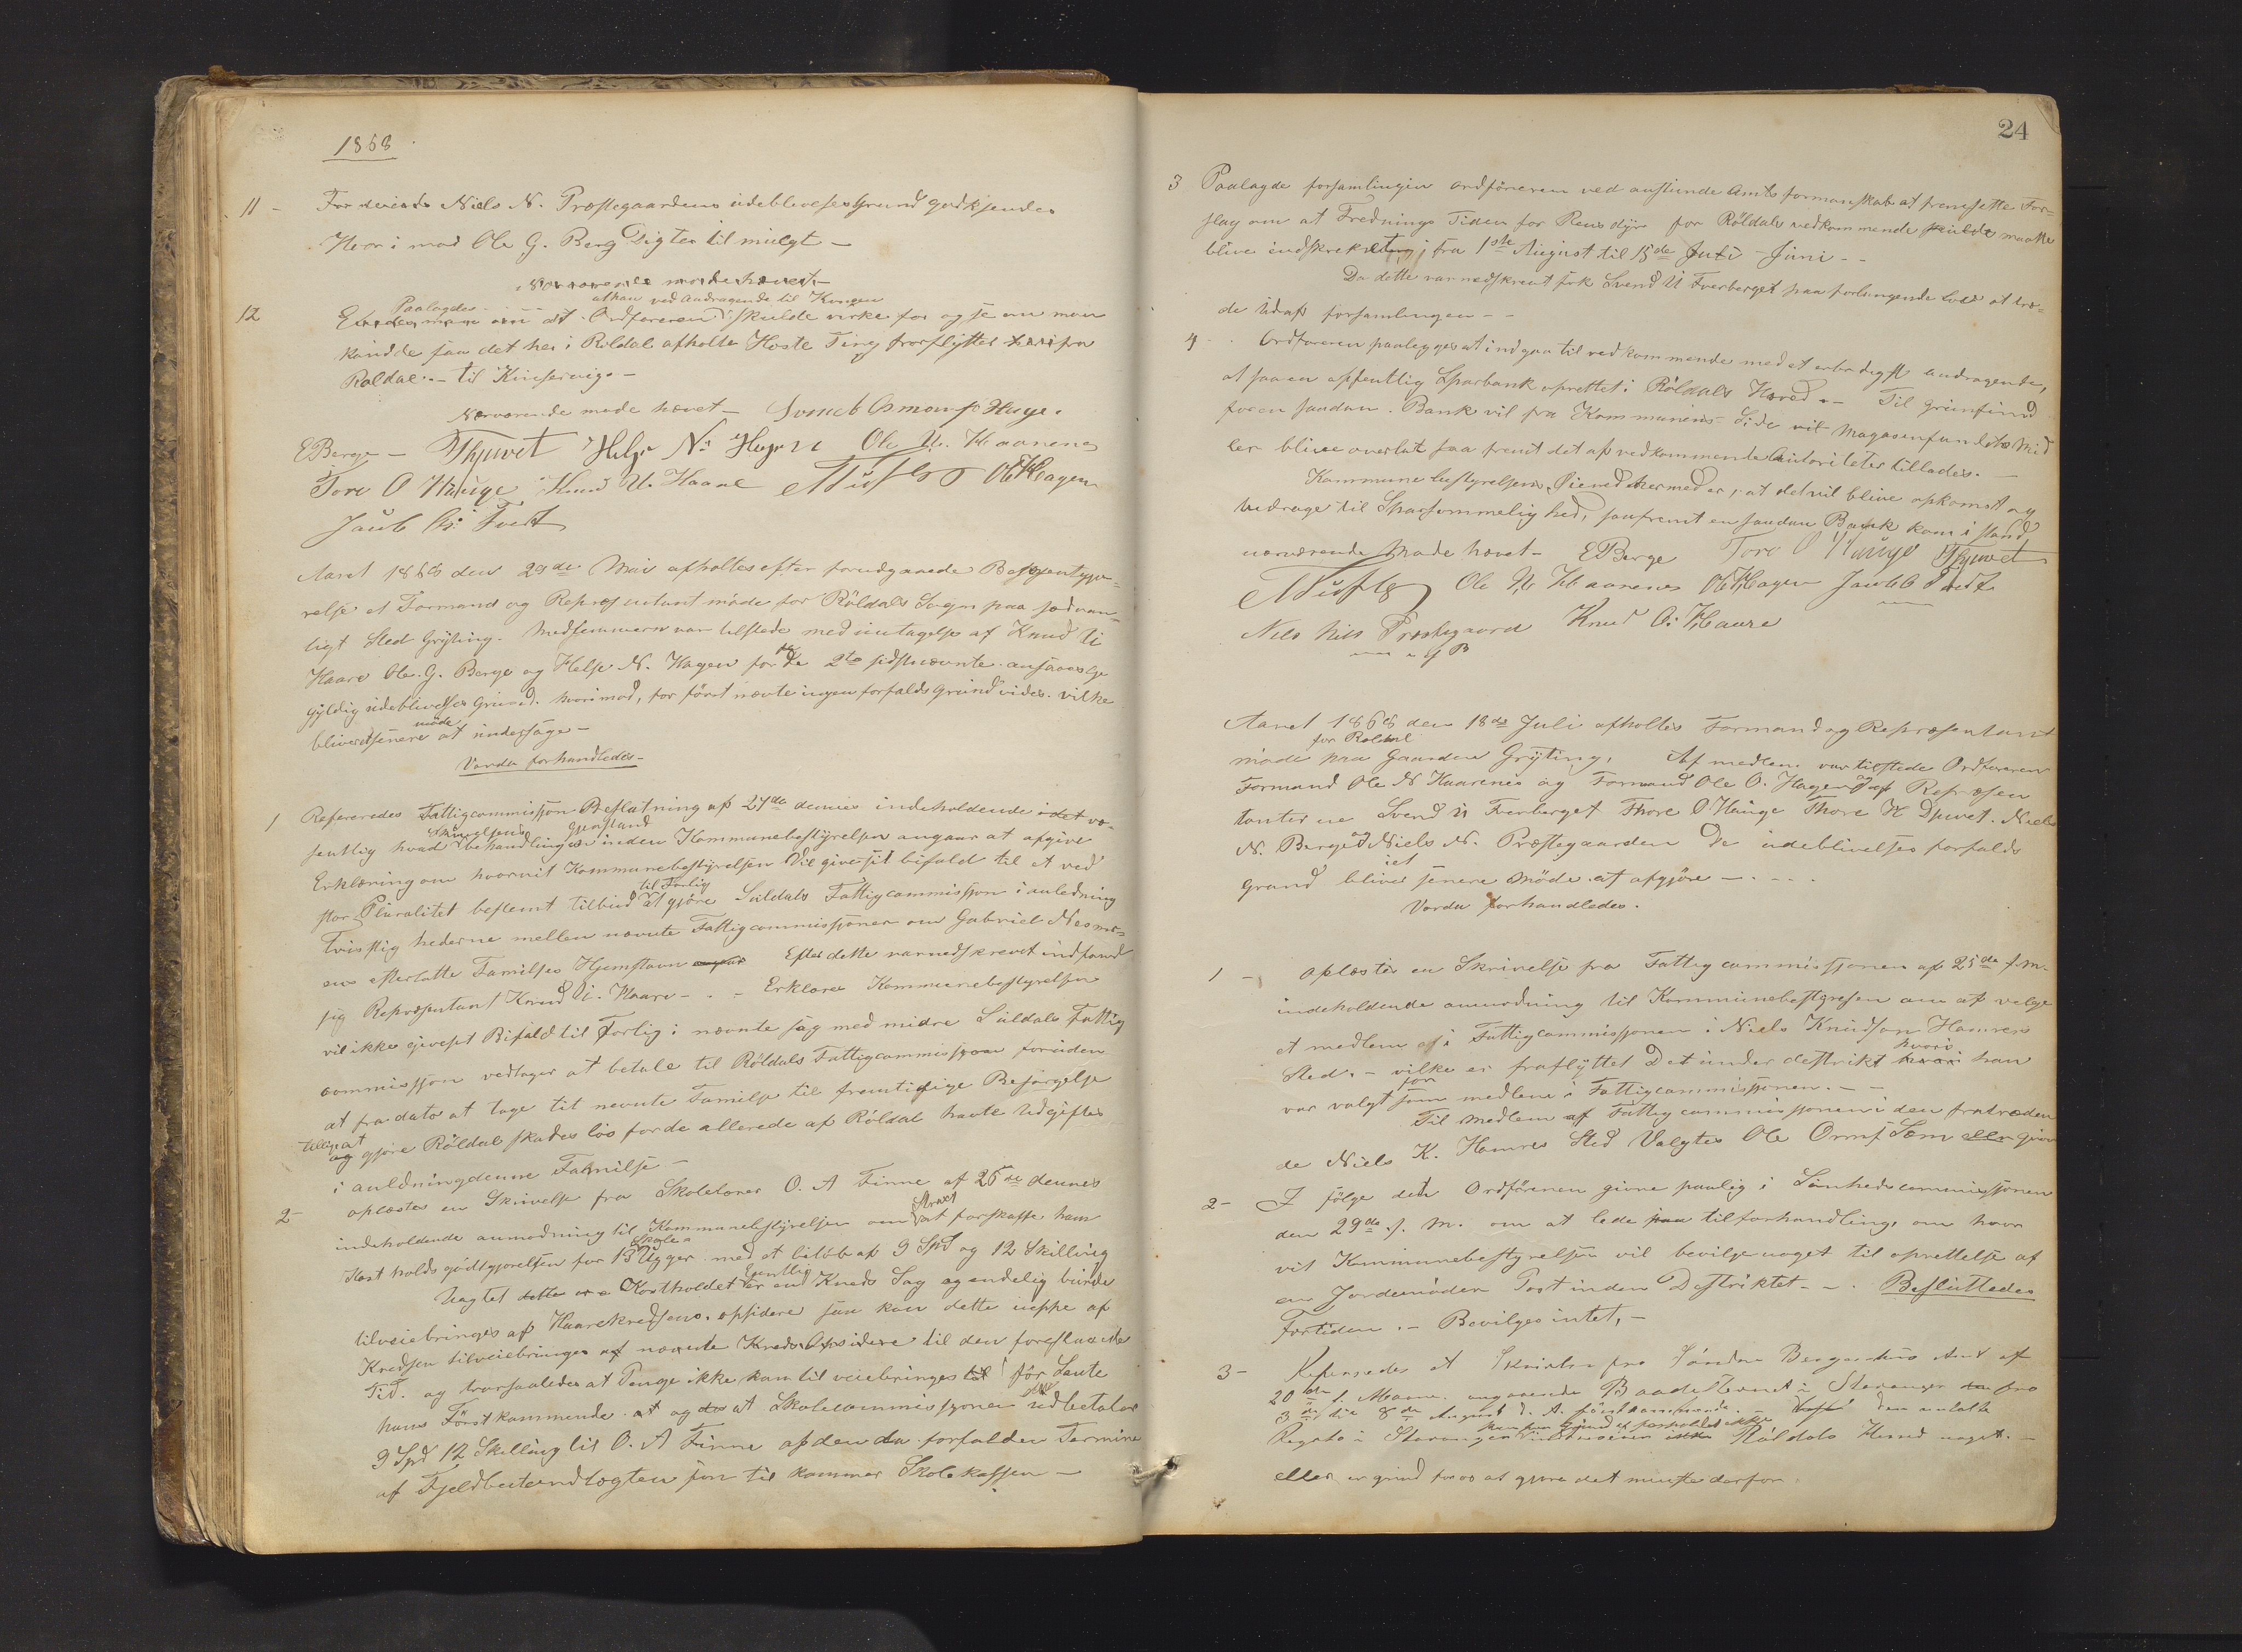 1868
11 - Niels N. Præstegaardens udeblivelses grund godkjendes
Hvor i mod Ole G. Berg Digtes til mulgt -
Nærværende møde hævet -
Paalagdes - at han ved Andragende til Kongen
12 at Ordføreren skulde virke for og se om man
kundde faa det her i Røldal afholte Høste Ting forflyttet herifra
Røldal. - til Kinservig. -
Nærværende møde hævet - Svend Osmonsø Huge.
EBerge - Thjuvet Helge N. Hagen Ole N. Haarenes
Tore O Hauge Knud U. Haare NNæss OKHagen
Jacob K: Tvedt
Aaret 1868 den 29de Mai afholtes efter forudgaaede Bekjentgjø-
relse et Formand og Repræsentant møde for Røldals Sogn paa sædvan-
ligt Sted Grÿting. Medlemmern var tilstede med undtagelse af Knud U
Haare Ole. G. Berge og Helge N. Hagen for de 2to sidstnævnte ansaaes
gyldig udeblivelses Grund. hvorimod, for først nævnte ingen forfalds grund vides. vilke
bliver senere møde at undersøge -
Vorda forhandledes -
1 Refereredes Fattigcommissjon Beslutning af 27de dennes indeholdende
sentlig hvad Skrivelsens behandlings Gjenstand inden Kommunebestÿrelsen angaar at afgive
Erklæring om hvorvit Kommunebestÿrelsen Vil give sit bifald til et ved
stor Pluralitet bestemt tilbud til Forlig at gjøre Suldals Fattigcommissjon i anledning
Tvisstighederne mellem nævnte Fattigcommissjoner om Gabriel
ens efterlatte Familjes Hjemstavn Efter dette var nedskrevet indfand
sig Repræsentant Knud U. Haare - . - Erklære Kommunebestyrelsen
vil ikke givesit Bifald til Forlig i nævnte sag med midre Suldals Fattig
commissjon vedtager at betale til Røldals Fattigcommissjon foruden
at fra dato at tage til nevnte Familje til fremtidige Besørgelse
tilligeat gjøre Røldal skades løs for de allerede af Røldal havte Udgifter
i anledning denne Familje -
2 - oplæstes en Skrivelse fra Skolelærer O. A Finne af 26de dennes
indeholdende anmodning til Kommunebestÿrelsen om Strax at forskaffe ham
Kost holds gödtgjørelsen for 13 Skole Ugger med et beløb af 9 Spd og 12 Skilling
Uagtet Kostholdet Egentlig er en Kreds Sag og endelig burde
tilveiebringes af Haarekredsens opsidere saa kan dette neppe af
Kredsen tilveiebringes af nævnte Kreds Opsidere til den foreslaaede
Tid. og tvorsaaledes at Penge ikke kan til veiebringes før Sante
hans Først kommende at og at Skolecommissjonen udbetaler
9 Spd 12 Skilling til O. A Finne af den da forfalden Termine
af Fjeldbeiteindtægten som til kommer Skolekassen -
24
3 Paalagde forsamlingen ordføreren ved anstunde Amts formanskab at fremsette For-
slag om at Frednings Tiden for Rens dÿr for Röldals vedkommende maatte
blive indskrenket fra 1ste August til 15de Juni - -
Da dette var nedskrevet fik Svend U Tverberget paa forlangende Lov at træ-
de Ud af forsamlingen - -
4 - . Ordføreren paalegges at indgaa til vedkommende med et erbødigst andragende,
at faa en offentlig Sparbank oprettet i Röldals Hered. - Til Grunfund
for en saadan Bank vil fra Kommunens Side vil Magasenfundets Mid
ler blive overlat saa fremt det af vedkommende Autoriteter tillades. -
Kommune bestyrelsens Øiemed hermed er, at det vil blive opkomst og
bedrage til Sparsommelig hed, saafremt en saadan Bank kom i stand,
nærværende Møde hævet - EBerge Tore O Hauge Thjuvet
NNæss Ole N. Haarenes OKHagen Jacob K Tvedt
Nils Nils Præstegaard Knud U: Haare
Aaret 1868 den 18de Juli afholtes Formand og Repræsentant
møde for Röldal paa Gaarden Grÿting, Af medlem. var tilstede Ordføreren
Formand Ole N Haarenes og Formand Ole O. Hagen Og af Repræsen
tanterne Svend U Tverberget Thore O Hauge Thore K Djuvet. Niels
N. Berge og Niels N. Præstegaarden De udeblivelses forfalds
grund bliver i et senere Møde at afgjøre - . . . .
Vorda forhandledes.
1 - oplæstes en Skrivelse fra Fattigcommissjonen af 25de f. M.
indeholdende anmodning til Kommunebestÿresen om at velge
et medlem af i Fattigcommissjonen i Niels Knudson Hamres
Sted. - vilke er fraflÿttet Det under destrikt hvori han
var valgt som medlem i Fattigcommissjonen. - -
Til Medlem af Fattigcommissjonen i den fratræden
de Niels K. Hamres Sted Valgtes Ole Ormsø Sem
2 - I følge den Ordføreren givne paalig i Sunhedscommissjonen
den 29de f. M. om at lede til forhandling, om hvor
vit Kommunebestyrelsen vil bevilge noget til oprettelse af
en Jordemøder Post inden Destriktet - - . Besluttedes
Fortiden. - Bevilges intet, -
3 - Refereredes et Skrivelse fra Søndre Bergenhus Amt af
20de f. Maan. angaaende Baadstevnet i Stavanger fra
3de til 8de August d. A. førstkommende. - den antalte
Regata i Stavanger Röldals Hered noget. -
eller er grund for os at gjøre det mindste derfor.